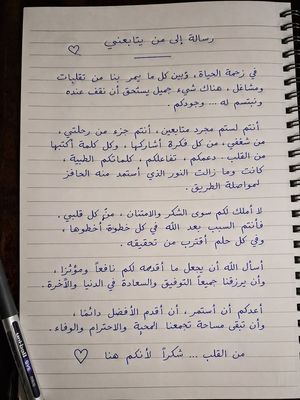 رسالة إلى من يتابعني
في زحمة الحياة، وبين كل ما يمر بنا من تقلبات
ومشاغل، هناك شيء جميل يستحق أن نقف عنده
ونبتسم له ... وجودكم.
أنتم لستم مجرد متابعين، أنتم جزء من رحلتي،
من شغفي، من كل فكرة أشاركها، وكل كلمة أكتبها
من القلب. دعمكم، تفاعلكم، كلماتكم الطيبة،
كانت وما زالت النور الذي أستمد منه الحافز
لمواصلة الطريق.
لا أملك لكم سوى الشكر والامتنان، من كل قلبي،
فأنتم السبب بعد الله في كل خطوة أخطوها،
وفي كل حلم أقترب من تحقيقه.
أسأل الله أن يجعل ما أقدمه لكم نافعاً ومؤثرًا،
وأن يرزقنا جميعاً التوفيق والسعادة في الدنيا والآخرة.
أعدكم أن أستمر، أن أقدم الأفضل دائمًا،
وأن تبقى مساحة تجمعنا المحبة والاحترام والوفاء.
من القلب ... شكراً لأنكم هنا